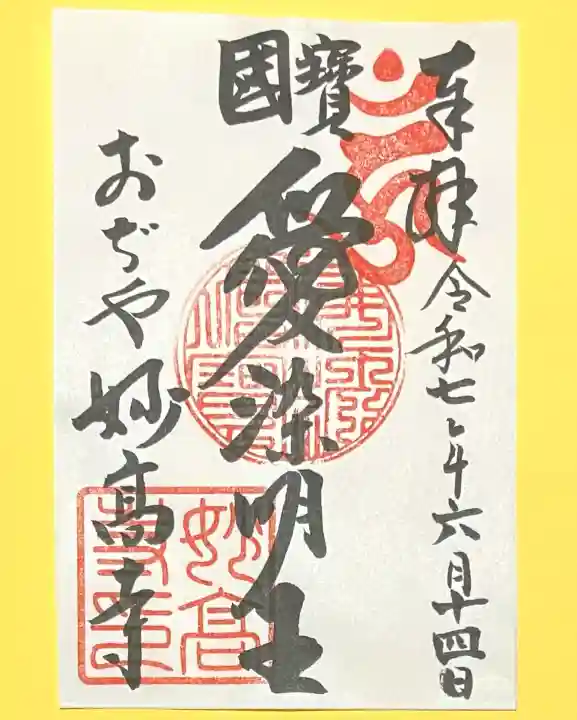 奉拝 令和七年六月十四日
國寶
愛染明王
おぢや 妙高寺
妙高寺印